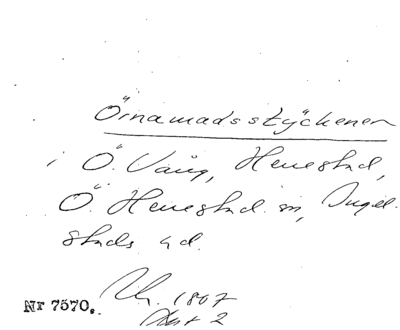 Örnamadsstÿckenen
i Ö. Vång, Henestad,
Ö. Henestad sn, Ingel-
stads hd.
Nr 7570.
1807
2